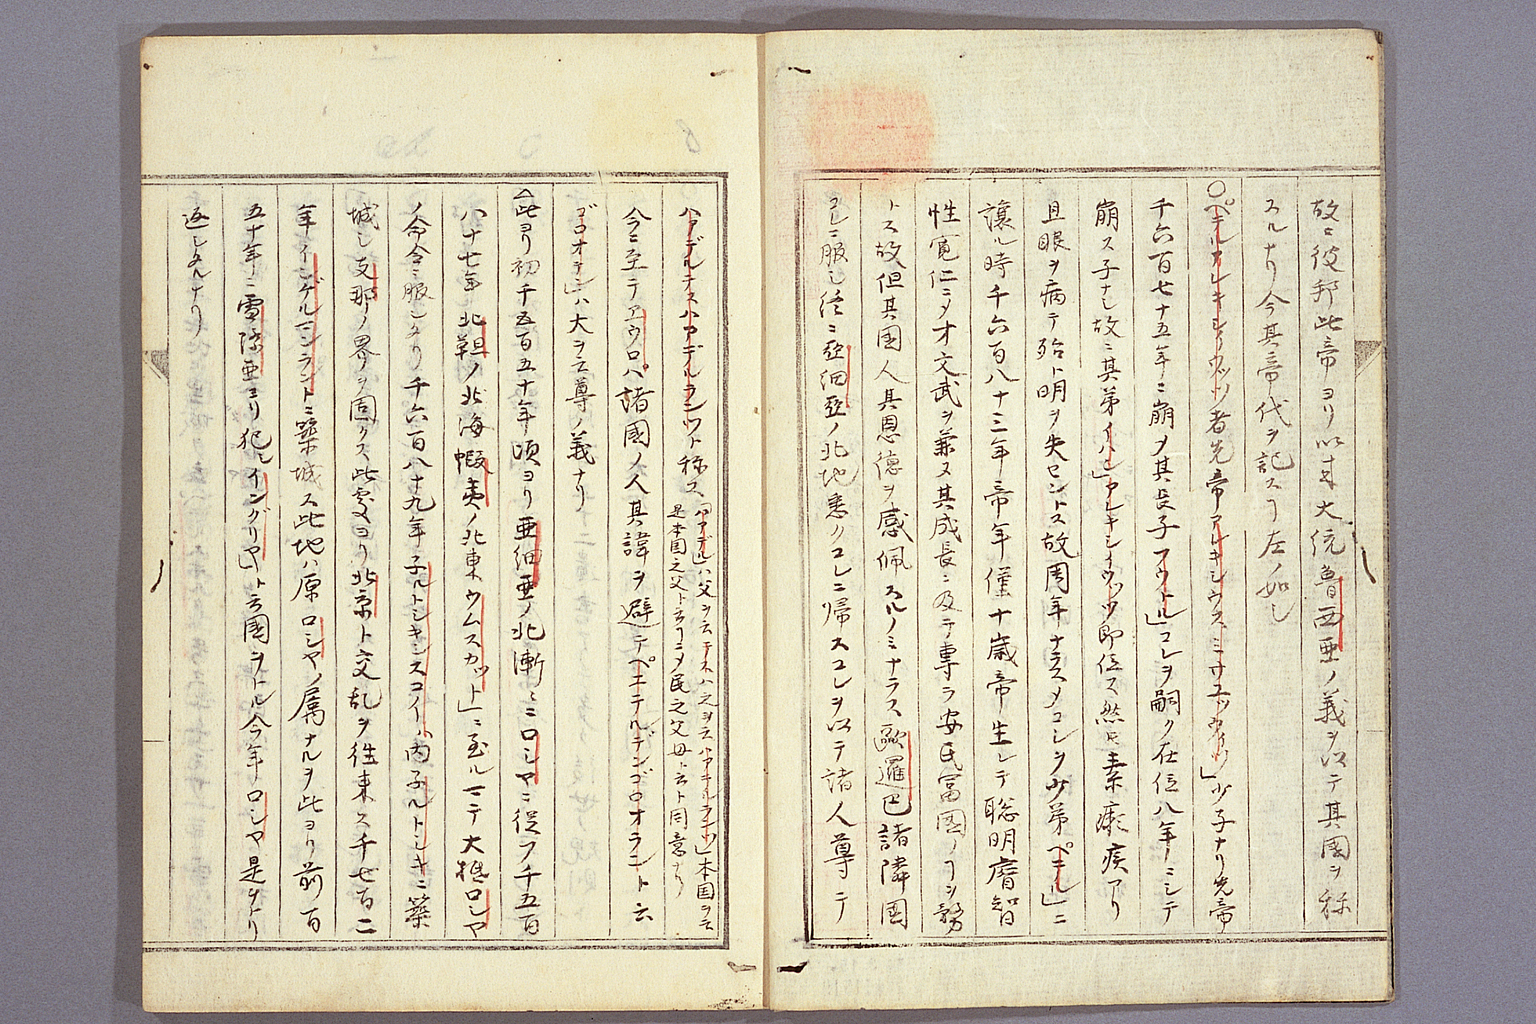 故ニ彼邦此帝ヨリ以来大統魯西亜ノ義ヲ以テ其國ヲ称
スルナリ今其帝代ヲ記スヿ左ノ如シ
○ペテルアレキシウッツ者先帝アレキシウスミハエロウイッツ」少子ナリ先帝
千六百七十五年ニ崩〆其長子フウトル」コレヲ嗣ク在位八年ノニシテ
崩ス子ナシ故ニ其弟イハン」アレキシイウッツ即位ス然𪜈素癡疾アリ
且眼ヲ病テ殆ト明ヲ失セントス故周年ナラス〆コレヲ少弟ペテル」ニ
譲ル時千六百八十三年帝年僅十歳帝生レテ聡明睿智
性寛仁ニ〆才文武ヲ兼又其成長ニ及テ専ラ安民富國ノヿヲ務
トス故但其国人其恩徳ヲ感佩スルノミナラス歐羅巴諸隣国
コレニ服シ終ニ亞細亞ノ北地悉クコレニ帰スコレヲ以テ諸人尊テ
ハアデルデスハアデルランツト称ス
ハアデル」ハ父ヲ云デスハ之ヲ云ハアデルランツ」本国ヲ云
是本国之父ト云フヿニ〆民之父母ト云ト同意ナリ
今ニ至テヱウロパ諸國ノ人其諱ヲ避テペエテルデンゴロオラント云
ゴロオテン」ハ大ヲ云尊ノ義ナリ
△此ヨリ初千五百五十年頃ヨリ亜細亜ノ北漸々ニロシヤニ従フ千五百
八十七年北韃ノ北海蝦夷ノ北東ウムスカット」ニ至ルマテ大抵ロシヤ
ノ命令ニ服シタリ千六百八十九年子ルトシキンスコイ」内子ルトシキニ築
城シ支那ノ界ヲ固クス此變ヨリ北京ト交乱ヲ往来ス千七百二
年インゲルマンラントニ築城ス此地ハ原ロシヤノ属ナルヲ此ヨリ前百
五十年ニ雪際亜ヨリ犯シイングリヤ」ト云國ヲトル今年ロシヤ是ヲトリ
返シタルナリ